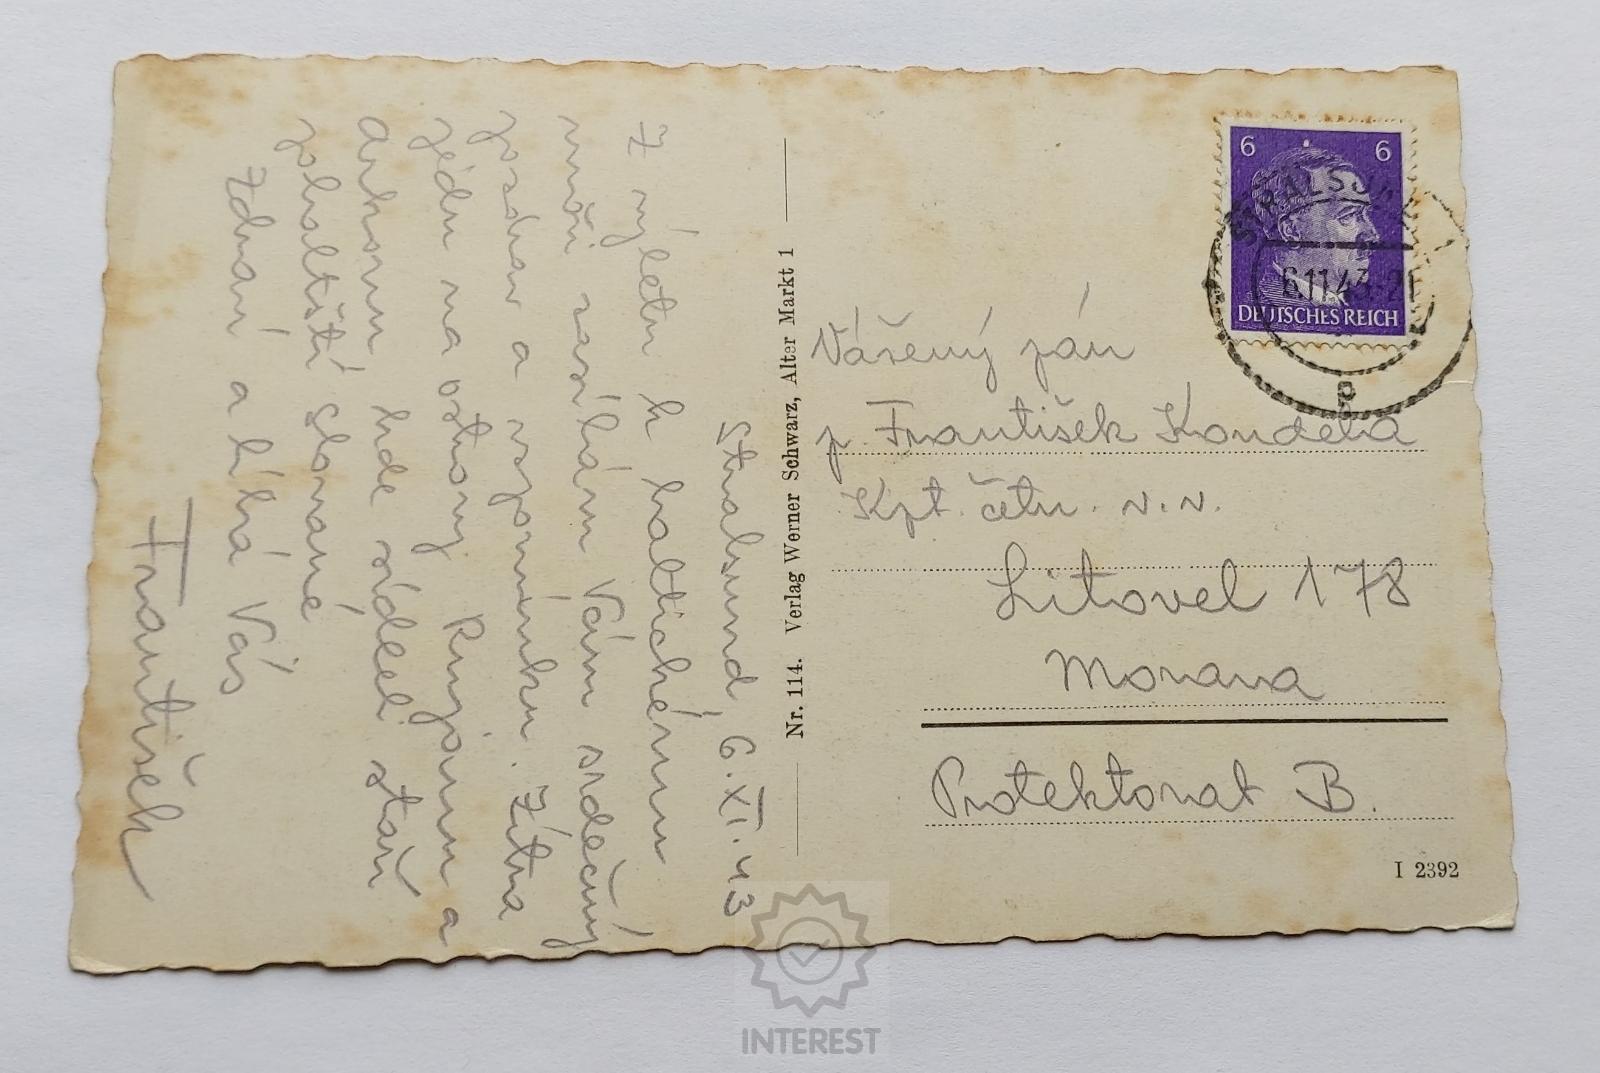 Stralsund, 6. XI. 43
Z výletu k baltickému
moři zasílám Vám srdečný
pozdrav a vzpomínku. Zítra
jedu na ostrov Rujanu a
Arkonu kde sídleli staří
pobaltští slované
Zdraví a líbá Vás
František
Nr. 114. Verlag Werner Schwarz, Alter Markt 1
6 6
DEUTSCHES REICH
STRALSUND
6.11.43-21
p
Vážený pán
p. František Kondela
Kpt. četn. v. v.
Litovel 178
Morava
Protektorat B.
I 2392
INTEREST